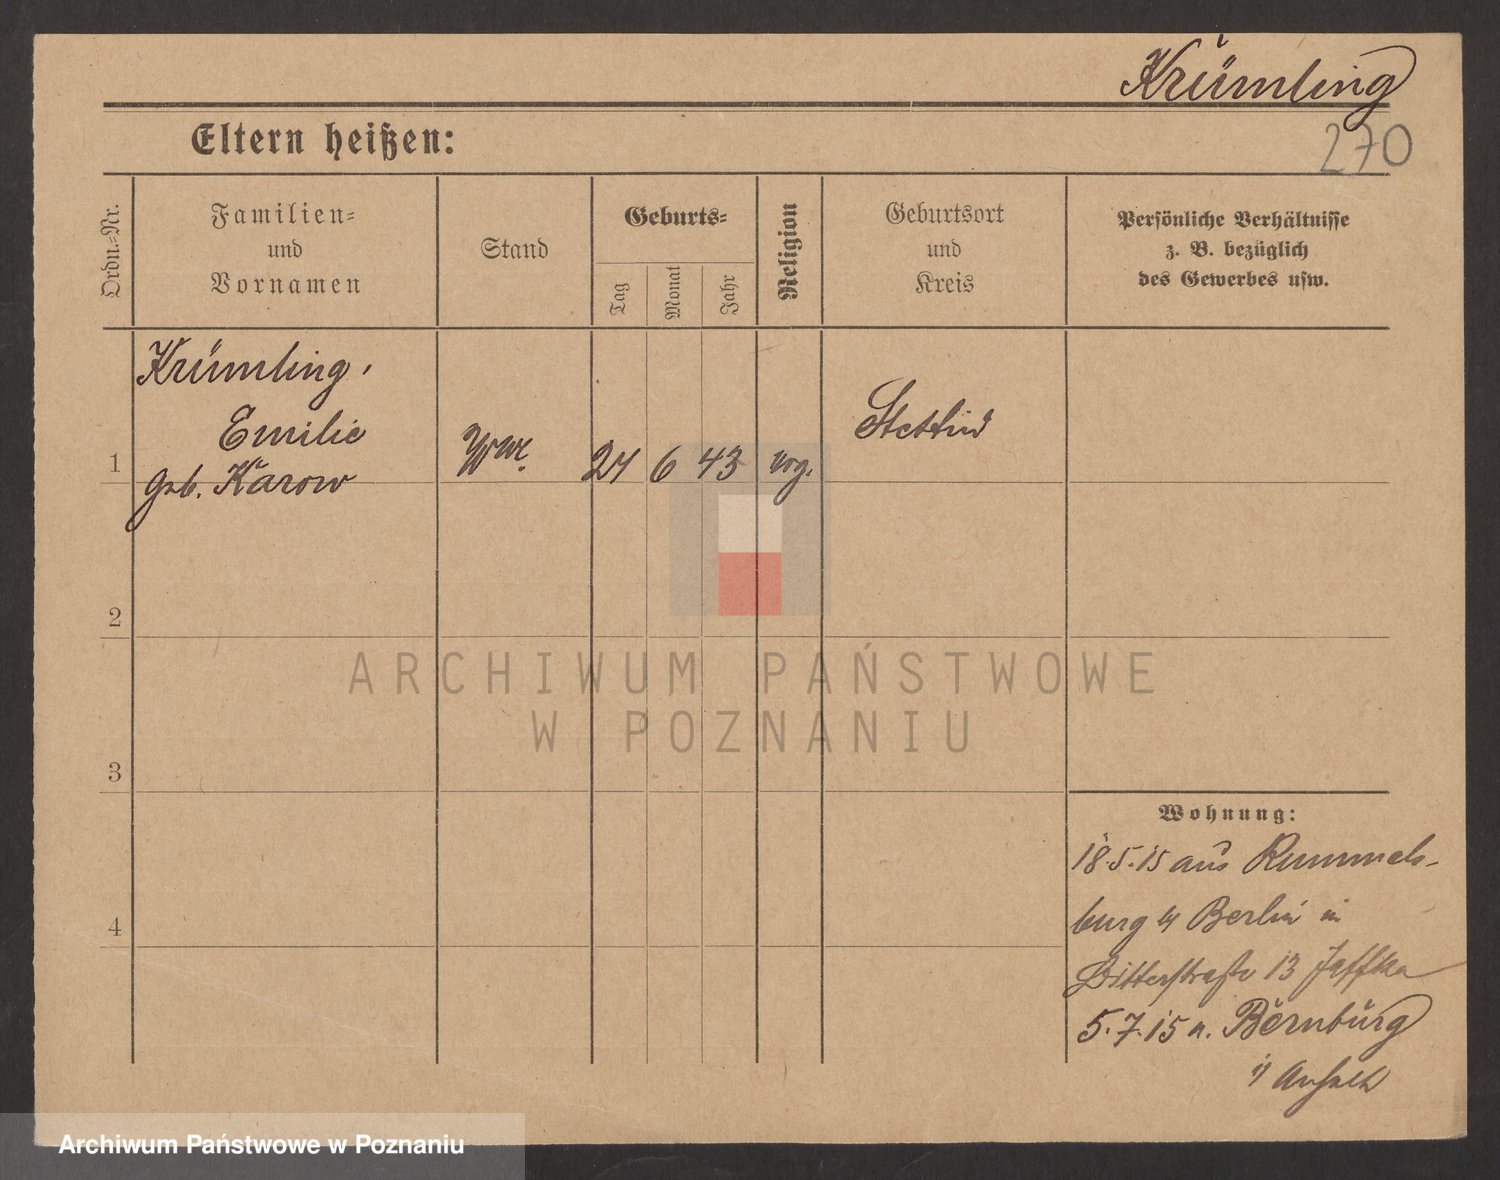 Krümling
270
Eltern heißen:
Ordn.=Nr.
Familien=
und
Vornamen
Stand
Geburts=
Tag
Monat
Jahr
Religion
Geburtsort
und
Kreis
Persönliche Verhältnisse
z. B. bezüglich
des Gewerbes usw.
Krümling,
Emilie
geb. Karow
1
Wwe.
24 6 43
evg.
Stettin
2
3
4
ARCHIWUM PAŃSTWOWE
W POZNANIU
Wohnung:
18.5.15 aus Rummels-
burg b/ Berlin in
Ritterstraße 13 Jaffka
5.7.15 n. Bernburg
i/ Anhalt
Archiwum Państwowe w Poznaniu